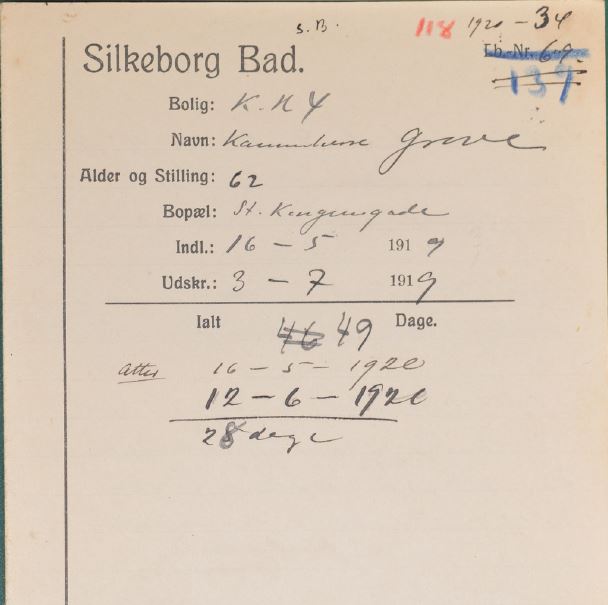 S. B. 118 1920 - 34
Silkeborg Bad. Lb.-Nr. 69
137
Bolig: K. N 4
Navn: Kammerherre Greve
Alder og Stilling: 62
Bopæl: St. Kongensgade
Indl.: 16 - 5 1919
Udskr.: 3 - 7 1919
Ialt 46 49 Dage.
atter 16 - 5 - 1920
12 - 6 - 1920
28 dage